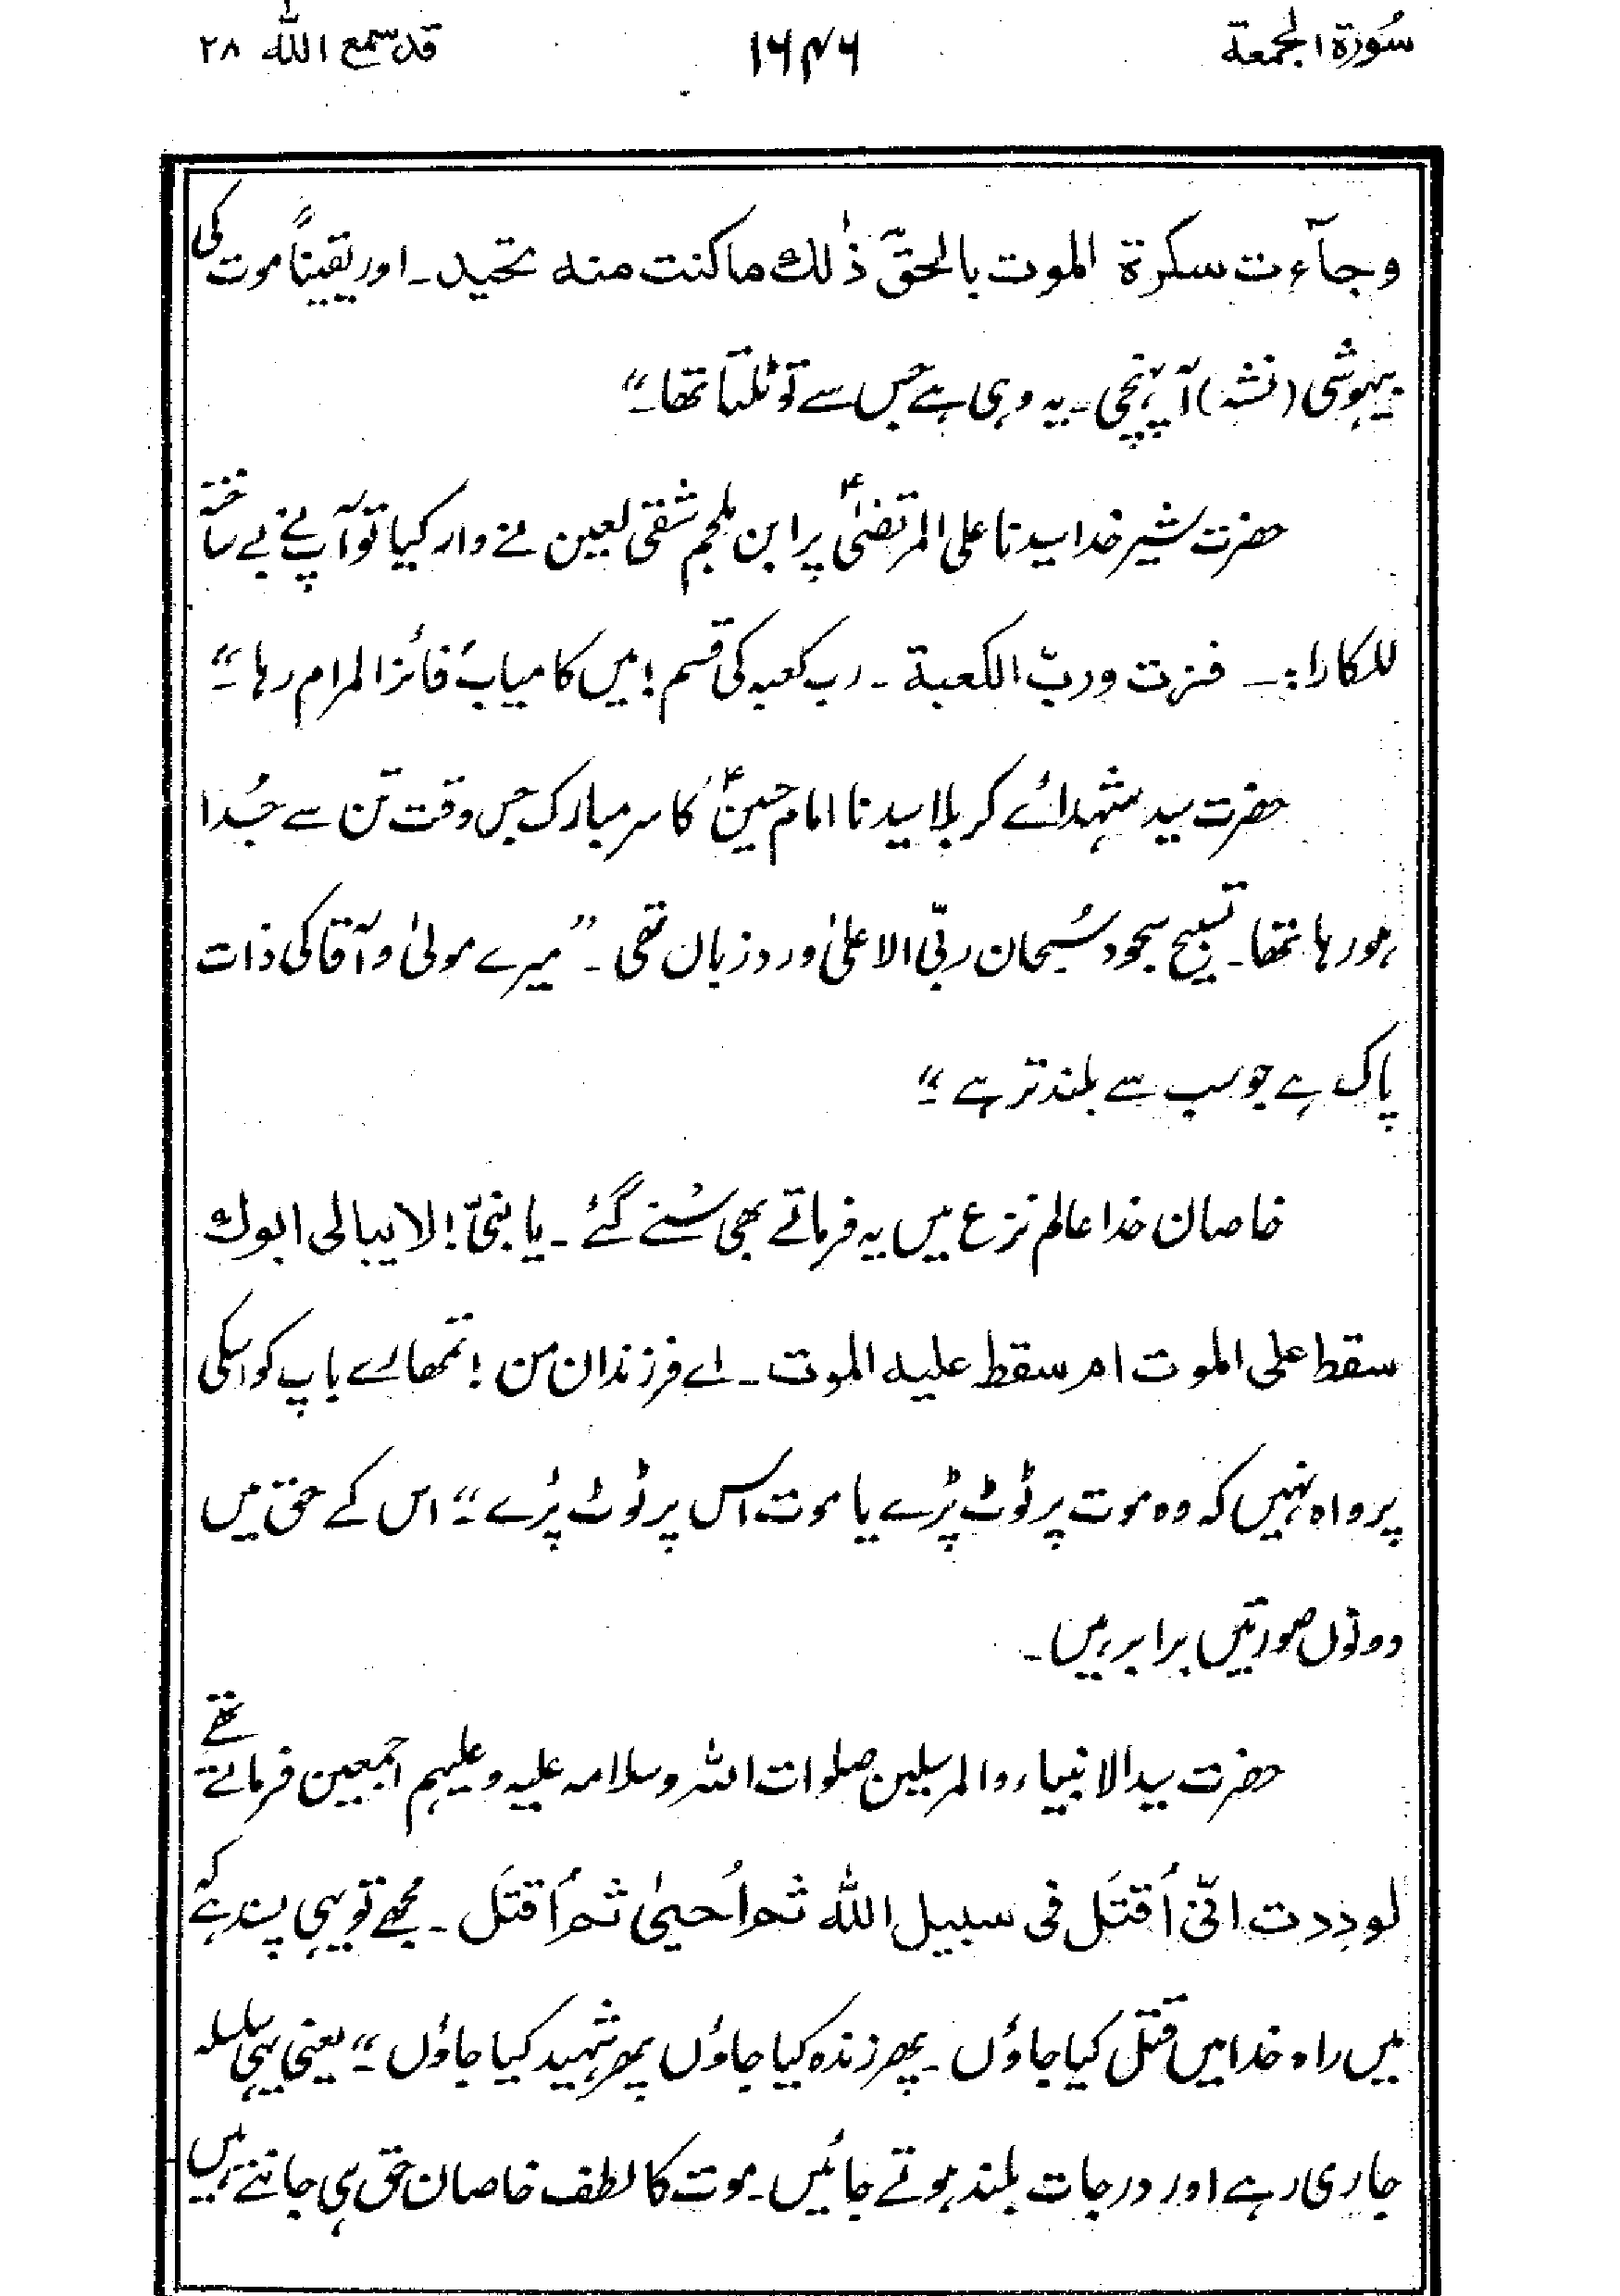 سُورة الجمعة ۱۶۴۶ قد سمع الله ۲۸
وجآءت سكرة الموت بالحقّ ذٰلك ماكنت منه تحيد۔ اور یقیناً موت کی
بیہوشی (نشہ) آپہنچی۔ یہ وہی ہے جس سے تو ٹلتا تھا۔"
حضرت شیر خدا سیدنا علی المرتضیٰؑ پر ابن ملجم شقی لعین نے وار کیا تو آپ نے بے ساختہ
للکارا:۔ فزت وربّ الكعبة ۔ رب کعبہ کی قسم! میں کامیاب فائز المرام رہا۔"
حضرت سید شہدائے کربلا سیدنا امام حسینؑ کا سر مبارک جس وقت تن سے جُدا
ہو رہا تھا۔ تسبیح سجود سُبحان ربّی الاعلیٰ ورد زبان تھی ۔ "میرے مولیٰ و آقا کی ذات
پاک ہے جو سب سے بلند تر ہے ۔"
خاصان خدا عالم نزع میں یہ فرماتے بھی سُنے گئے ۔ یا بنیّ! لا یبالی ابوك
سقط علی الموت ام سقط علیه الموت ۔ اے فرزندان من! تمھارے باپ کو اسکی
پرواہ نہیں کہ وہ موت پر ٹوٹ پڑے یا موت اس پر ٹوٹ پڑے ۔" اس کے حق میں
دونوں صورتیں برابر ہیں ۔
حضرت سید الانبیاء والمرسلین صلوات اللہ وسلامہ علیہ وعلیہم اجمعین فرماتے تھے
لوددت انّی اُقتَل فی سبیل الله ثم اُحییٰ ثم اُقتَل ۔ مجھے تو یہی پسند ہے کہ
میں راہ خدا میں قتل کیا جاؤں ۔ پھر زندہ کیا جاؤں پھر شہید کیا جاؤں ۔" یعنی یہی سلسلہ
جاری رہے اور درجات بلند ہوتے جائیں ۔ موت کا لطف خاصان حق ہی جانتے ہیں